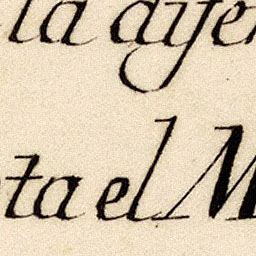 la dife
ta el M